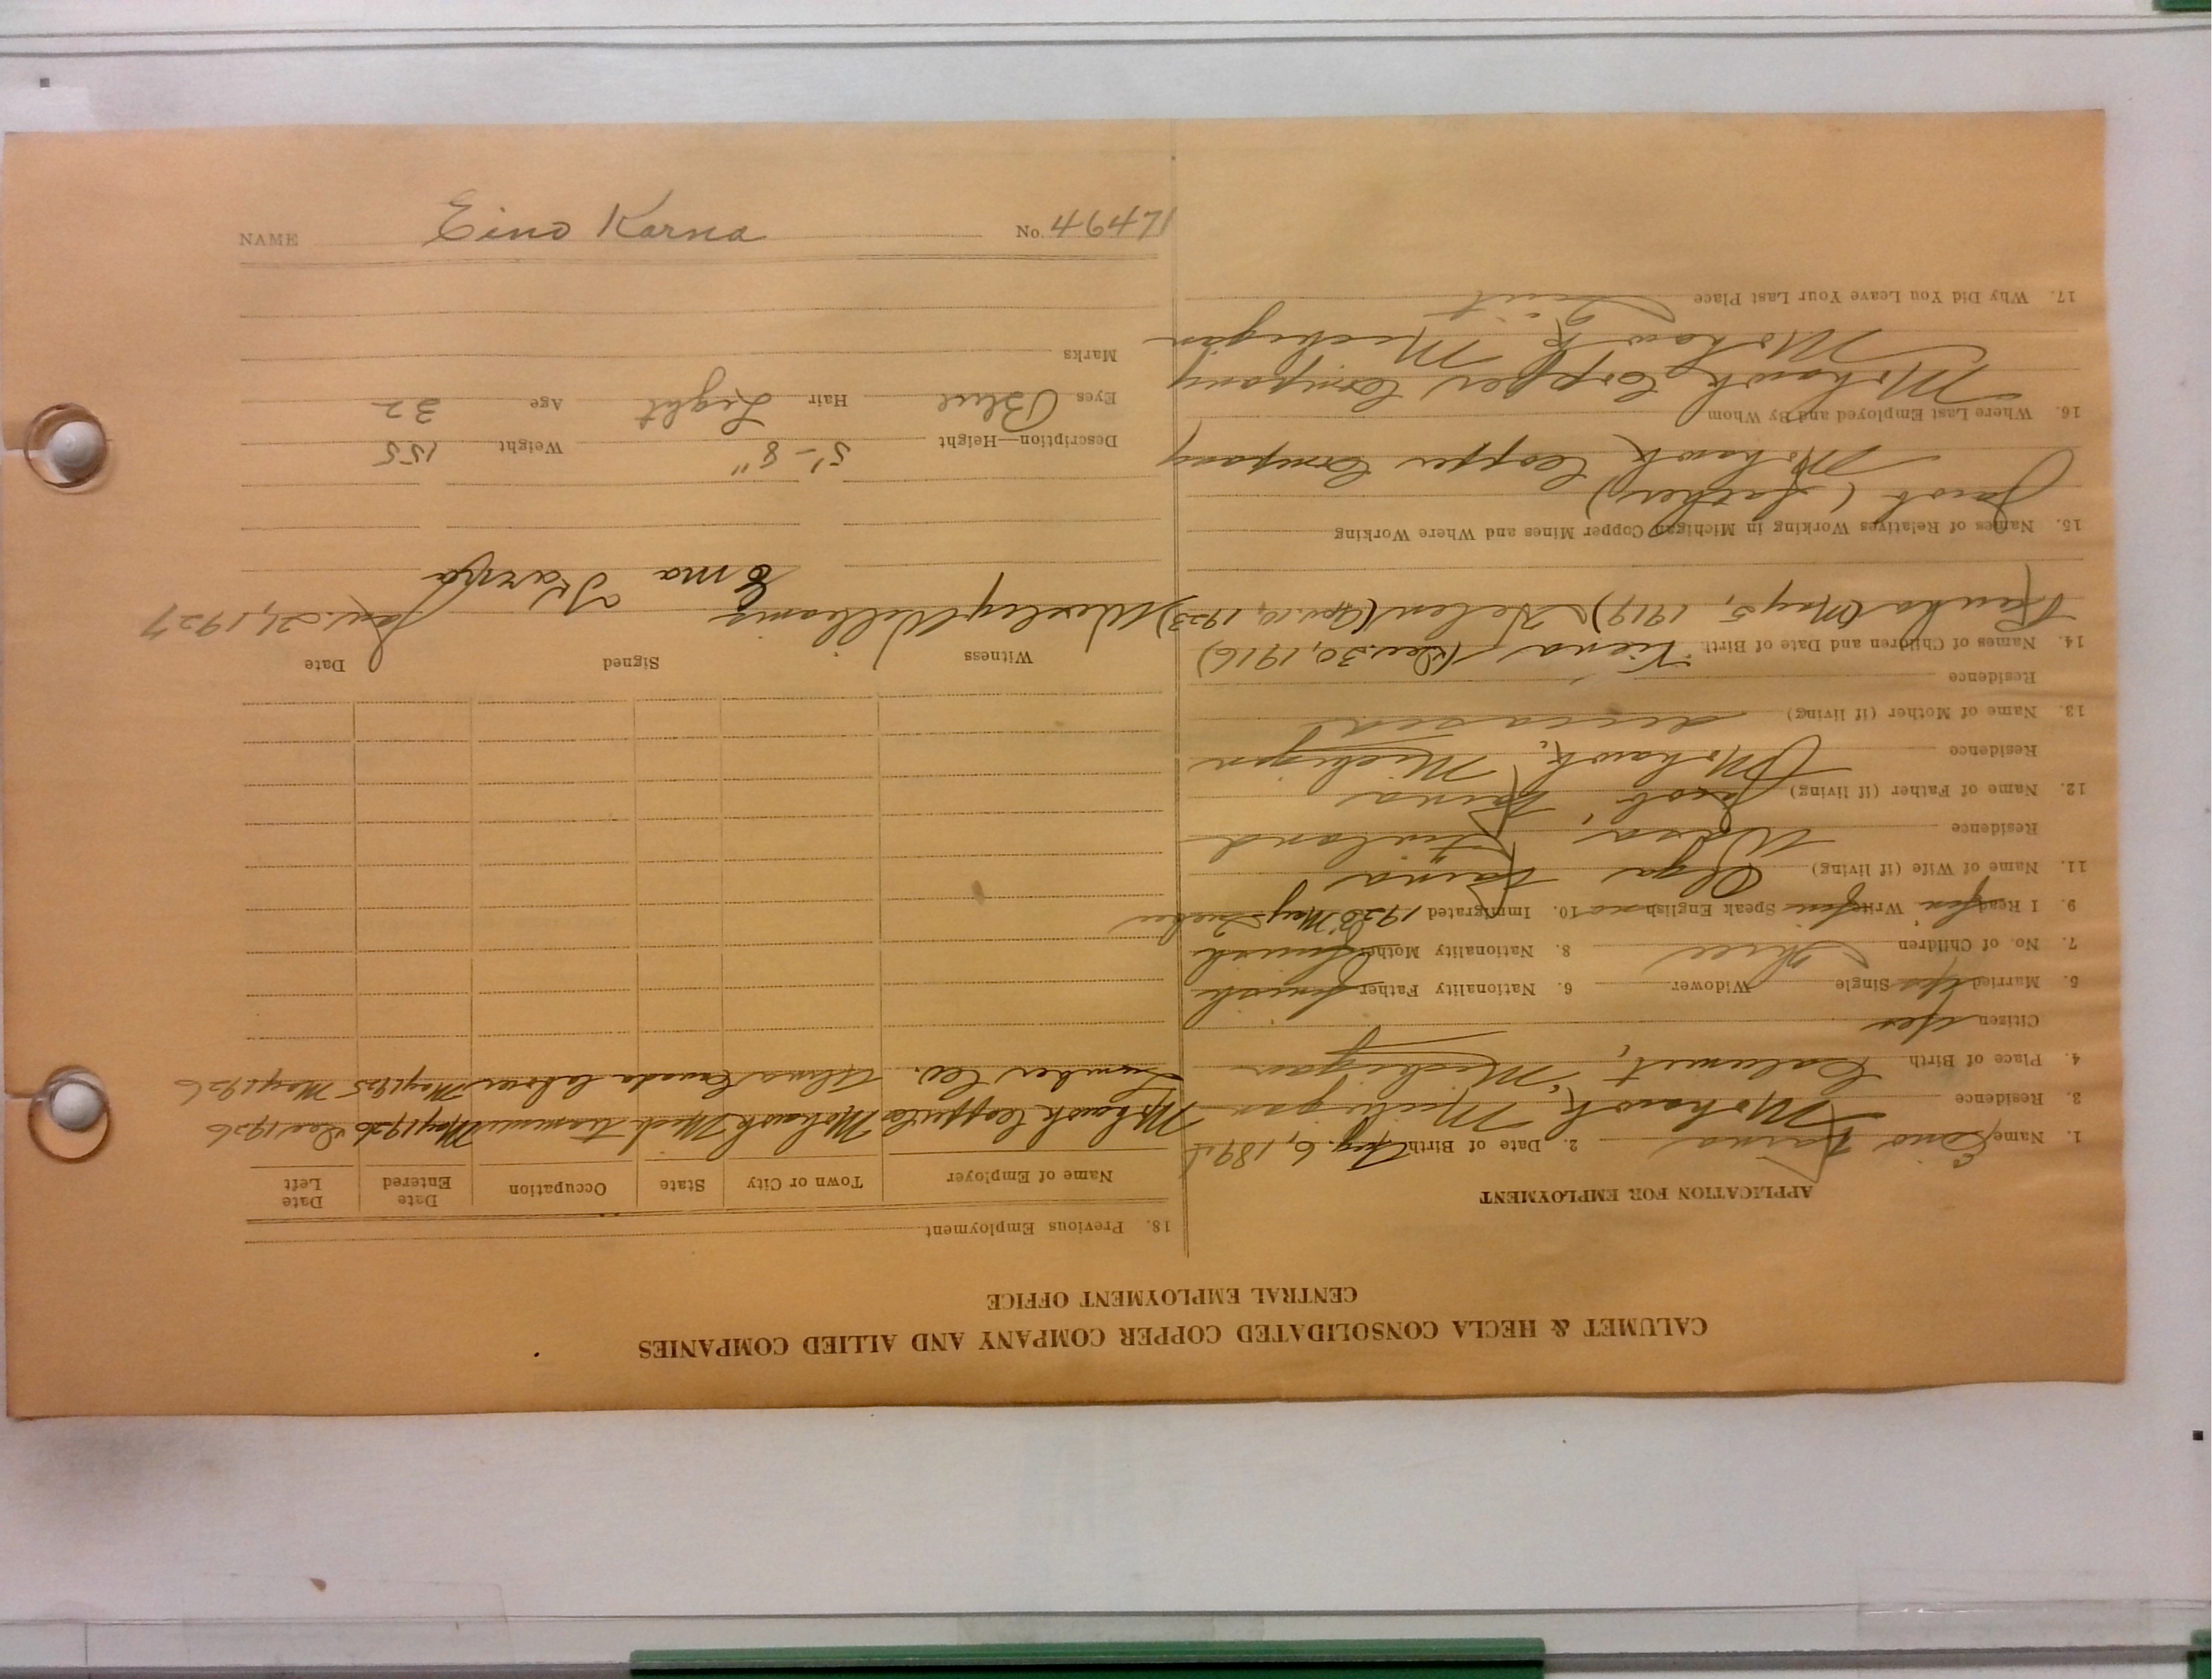 NAME Eino Karna No. 46471
CALUMET & HECLA CONSOLIDATED COPPER COMPANY AND ALLIED COMPANIES
CENTRAL EMPLOYMENT OFFICE
APPLICATION FOR EMPLOYMENT
1. Name Eino Karna 2. Date of Birth Aug. 6, 1894
3. Residence Mohawk, Michigan
4. Place of Birth Calumet, Michigan
Citizen Yes
5. Married Yes Single Widower 6. Nationality Father Finnish
7. No. of Children Three 8. Nationality Mother Finnish
9. I Read Finn Write Finn Speak English no 10. Immigrated 1926 May Quebec
11. Name of Wife (if living) Olga Karna
Residence Wasa, Finland
12. Name of Father (if living) Jacob Karna
Residence Mohawk, Michigan
13. Name of Mother (if living) deceased
Residence
14. Names of Children and Date of Birth (Dec. 30, 1916)
(May 5, 1919) Helen (Apr. 10, 1923)
15. Names of Relatives Working in Michigan Copper Mines and Where Working
Jacob (father)
Mohawk Copper Company
16. Where Last Employed and By Whom
Mohawk Copper Company
Mohawk, Michigan
17. Why Did You Leave Your Last Place Quit
18. Previous Employment
Name of Employer Town or City State Occupation Date Entered Date Left
Mohawk Copper Co Mohawk Mich trammer May 1926 Dec 1926
Lumber Co. Canada laborer May 1925 May 1926
Witness Signed Date
Wesley Williams Jan. 21, 1927
Eino Karna
Description—Height 5'-8" Weight 155
Eyes Blue Hair Light Age 32
Marks